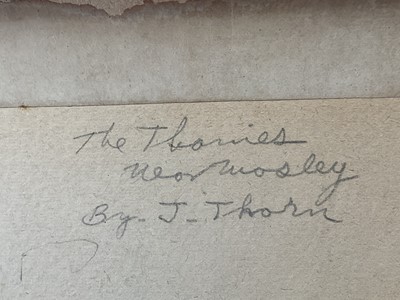 The Thornies
Near Mosley
By - J - Thorn